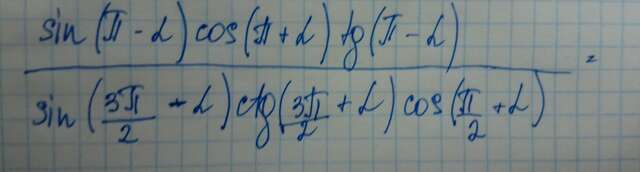 sin (π - α) cos (π + α) tg (π - α)
sin (3π/2 - α) ctg (3π/2 + α) cos (π/2 + α) =